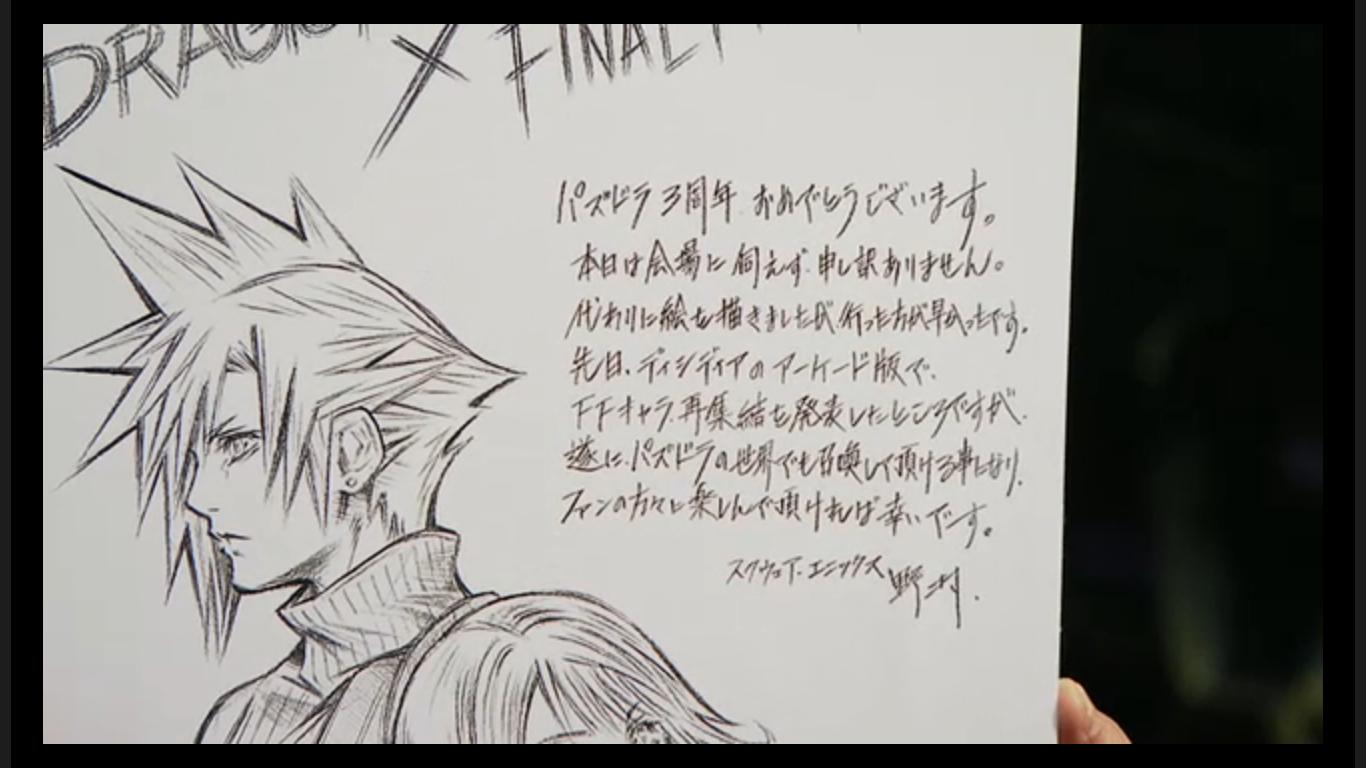 DRAGON × FINAL
パズドラ3周年 おめでとうございます。
本日は会場に伺えず、申し訳ありません。
代わりに絵を描きましたが、行った方が早かったです。
先日、ディシディアのアーケード版で、
FFキャラ再集結を発表したところですが、
遂に、パズドラの世界でも召喚して頂ける事になり、
ファンの方々に楽しんで頂ければ幸いです。
スクウェア・エニックス 野村